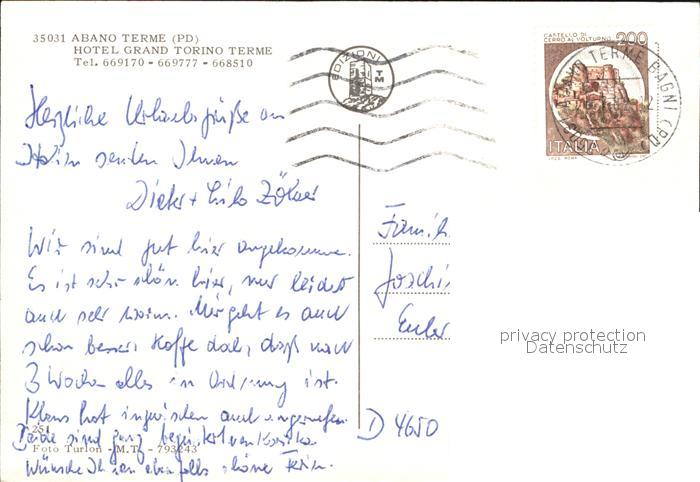 35031 ABANO TERME (PD)
HOTEL GRAND TORINO TERME
Tel. 669170 - 669777 - 668510
EDIZIONI
TM
CASTELLO DI
CERRO AL VOLTURNO
200
ITALIA
ABANO TERME BAGNI (PD)
Herzliche Urlaubsgrüße aus
Italien senden Ihnen
Dieter +
Wir sind gut hier angekommen.
Es ist sehr schön hier, nur leider
auch sehr warm. Mir geht es auch
schon besser. Hoffe doch, daß nach
3 Wochen alles in Ordnung ist.
Klaus hat inzwischen auch angerufen.
Beide sind ganz begeistert von Korsika.
Wünsche Ihnen ebenfalls schöne Ferien.
251
Foto Turlon - M.T. - 793243
Famil
Joachi
D 4650
privacy protection
Datenschutz